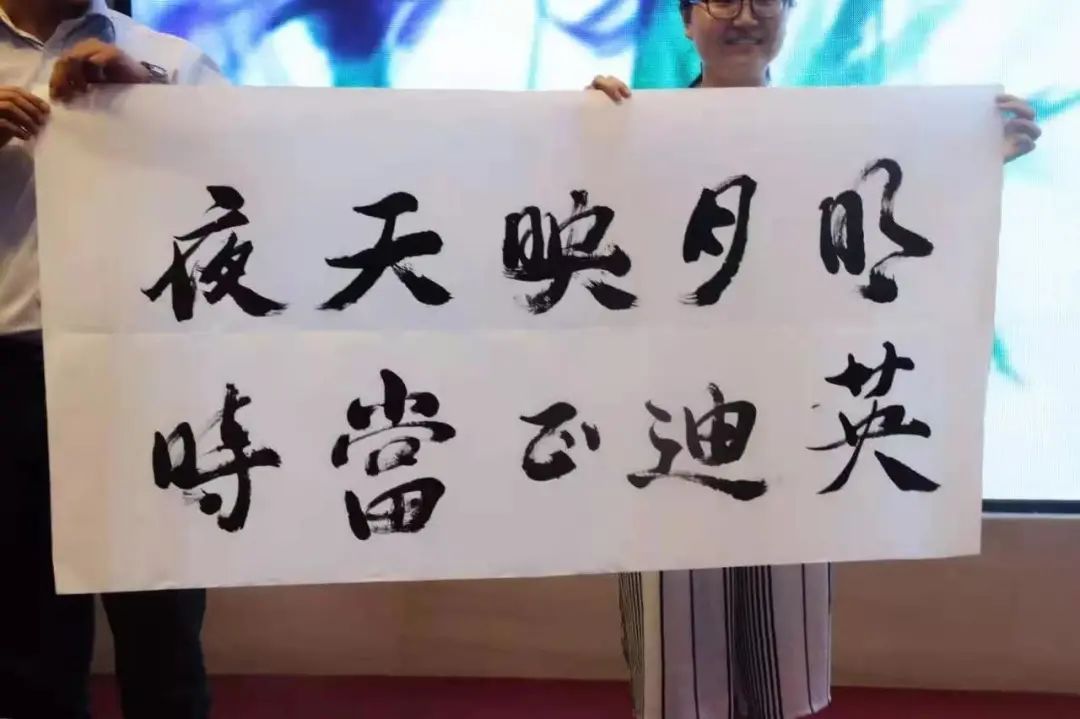 明月映天夜
英迪正當時